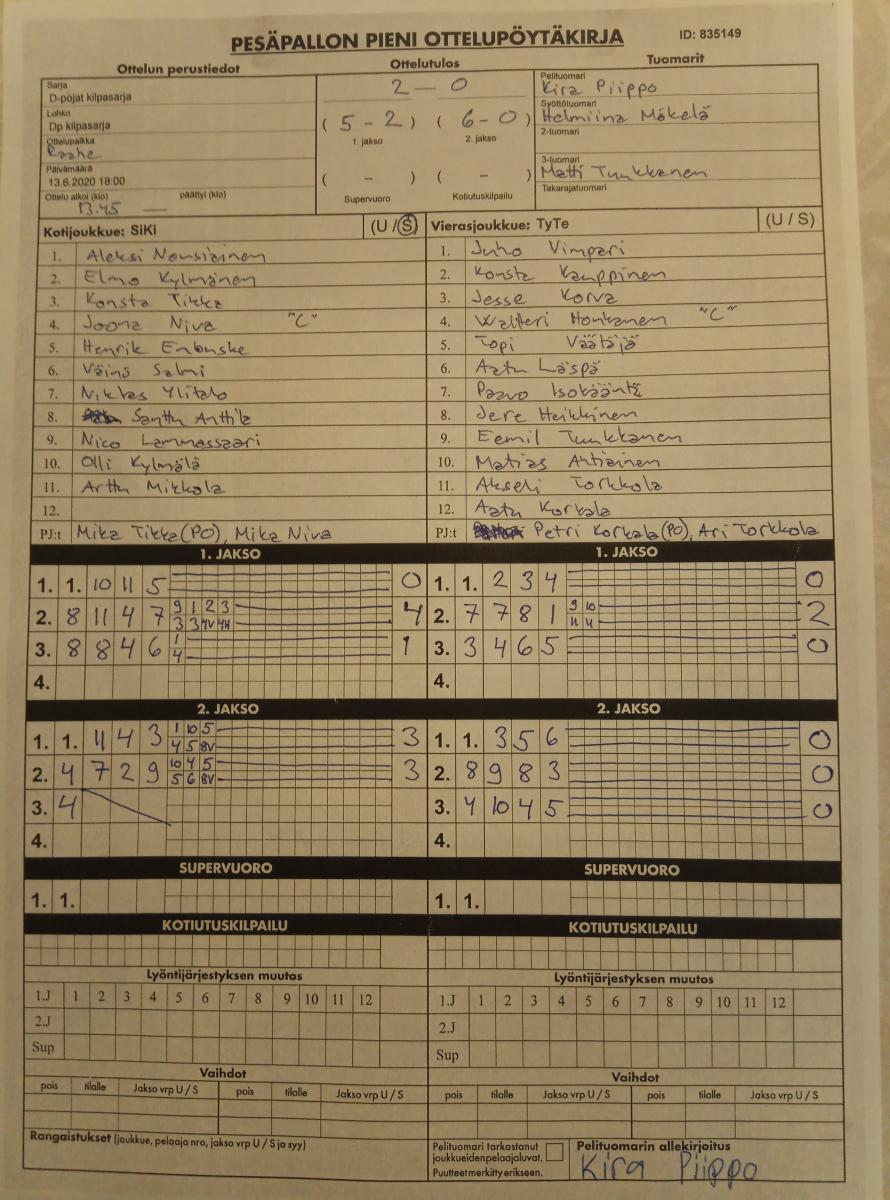 PESÄPALLON PIENI OTTELUPÖYTÄKIRJA ID: 835149
Ottelun perustiedot Ottelutulos Tuomarit
Sarja
D-pojat kilpasarja
Lohko
Dp kilpasarja
Ottelupaikka
Raahe
Päivämäärä
13.6.2020 18:00
Ottelu alkoi (klo) päättyi (klo)
13.45 —
2 — 0
( 5 - 2 ) ( 6 - 0 )
1. jakso 2. jakso
( - ) ( - )
Supervuoro Kotiutuskilpailu
Pelituomari
Kira Piippo
Syöttötuomari
Helmiina Mäkelä
2-tuomari
3-tuomari
Matti Tuukkanen
Takarajatuomari
Kotijoukkue: SiKi (U / S)
1. Aleksi Nousiainen
2. Elmo Kylmänen
3. Konsta Tikka
4. Joona Niva "C"
5. Henrik Enbuske
6. Väinö Salmi
7. Niklas Ylitalo
8. Santtu Anttila
9. Nico Lammassaari
10. Olli Kylmälä
11. Arttu Mikkola
12.
PJ:t Mika Tikka (PO), Mika Niva
Vierasjoukkue: TyTe (U / S)
1. Juho Vimpari
2. Konsta Kauppinen
3. Jesse Korva
4. Waltteri Honkanen "C"
5. Topi Väätäjä
6. Aatu Läspä
7. Paavo Isokääntä
8. Jere Heikkinen
9. Eemil Tuukkanen
10. Matias Ahtiainen
11. Akseli Torkkola
12. Aatu Korkala
PJ:t Petri Korkala (PO), Ari Torkkola
1. JAKSO 1. JAKSO
1. 1. 10 11 5 0 1. 1. 2 3 4 0
2. 8 11 4 7 9 1 2 3 4 2. 7 7 8 1 9 10 2
3 3 4V 4H 11 4
3. 8 8 4 6 1 1 3. 3 4 6 5 0
4
4. 4.
2. JAKSO 2. JAKSO
1. 1. 11 4 3 1 10 5 3 1. 1. 3 5 6 0
4 5 8V
2. 4 7 2 9 10 4 5 3 2. 8 9 8 3 0
5 6 8V
3. 4 3. 4 10 4 5 0
4. 4.
SUPERVUORO SUPERVUORO
1. 1. 1. 1.
KOTIUTUSKILPAILU KOTIUTUSKILPAILU
Lyöntijärjestyksen muutos Lyöntijärjestyksen muutos
1.J 1 2 3 4 5 6 7 8 9 10 11 12 1.J 1 2 3 4 5 6 7 8 9 10 11 12
2.J 2.J
Sup Sup
Vaihdot Vaihdot
pois tilalle Jakso vrp U / S pois tilalle Jakso vrp U / S pois tilalle Jakso vrp U / S pois tilalle Jakso vrp U / S
Rangaistukset (joukkue, pelaaja nro, jakso vrp U / S ja syy)
Pelituomari tarkastanut
joukkueidenpelaajaluvat.
Puutteet merkitty erikseen.
Pelituomarin allekirjoitus
Kira Piippo